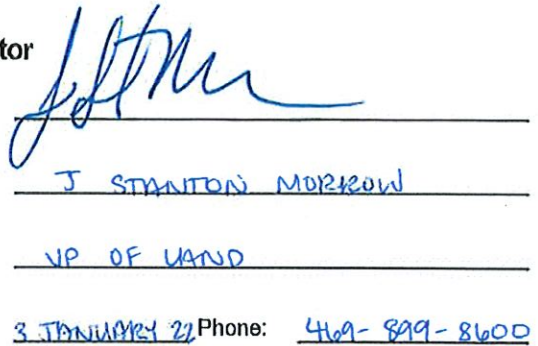 tor
J STANTON MORROW
VP OF LAND
3 JANUARY 22 Phone: 469-899-8600